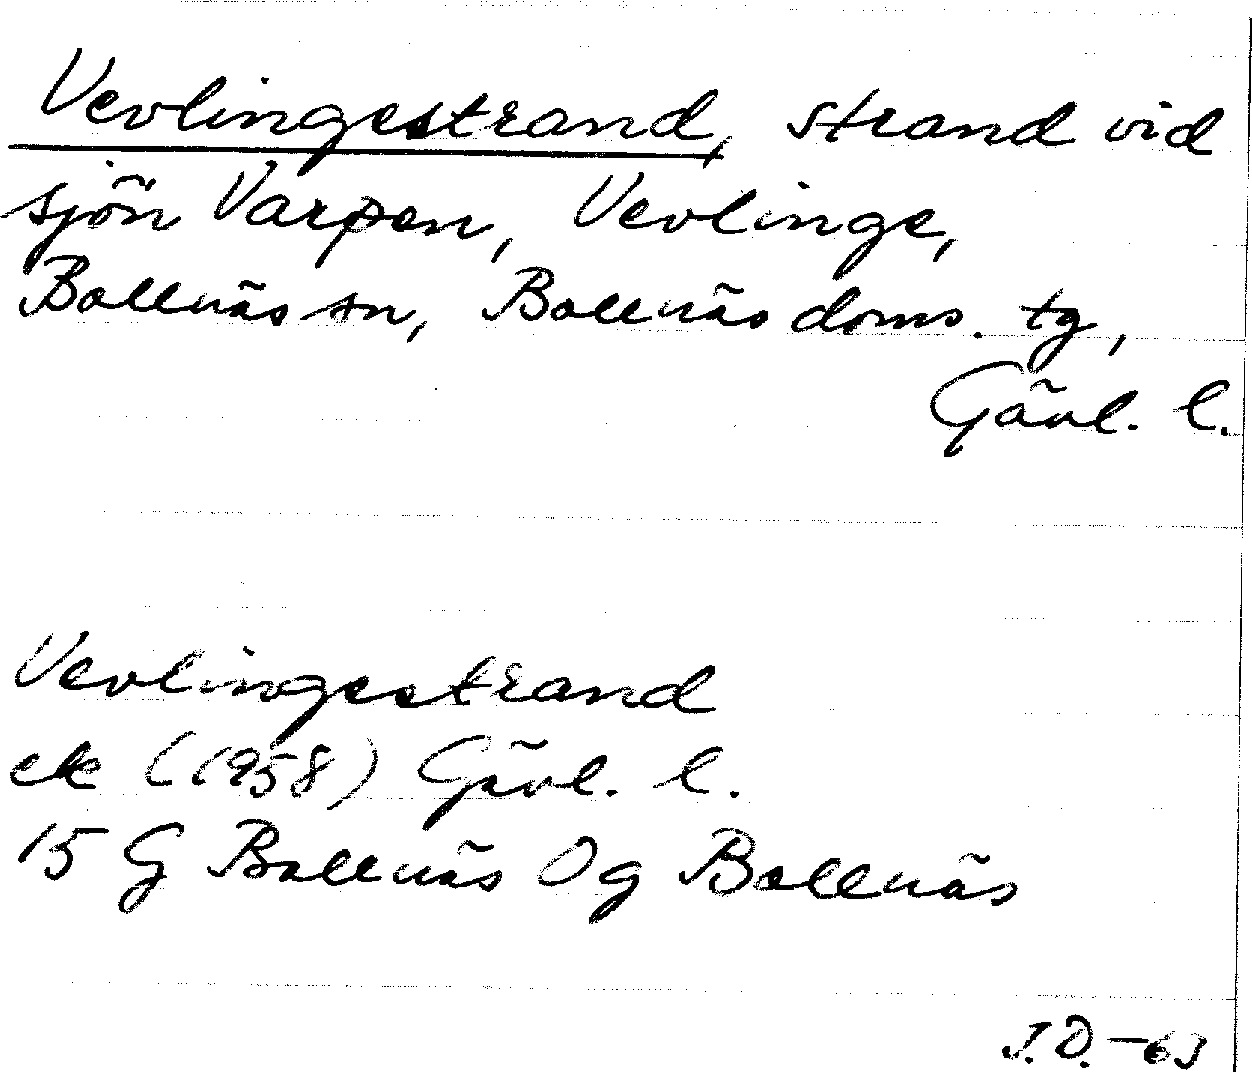 Vevlingestrand, strand vid
sjön Varpen, Vevlinge,
Bollnäs sn, Bollnäs doms. tg,
Gävl. l.
Vevlingestrand
ek (1958) Gävl. l.
15 G Bollnäs Og Bollnäs
J.D.-63